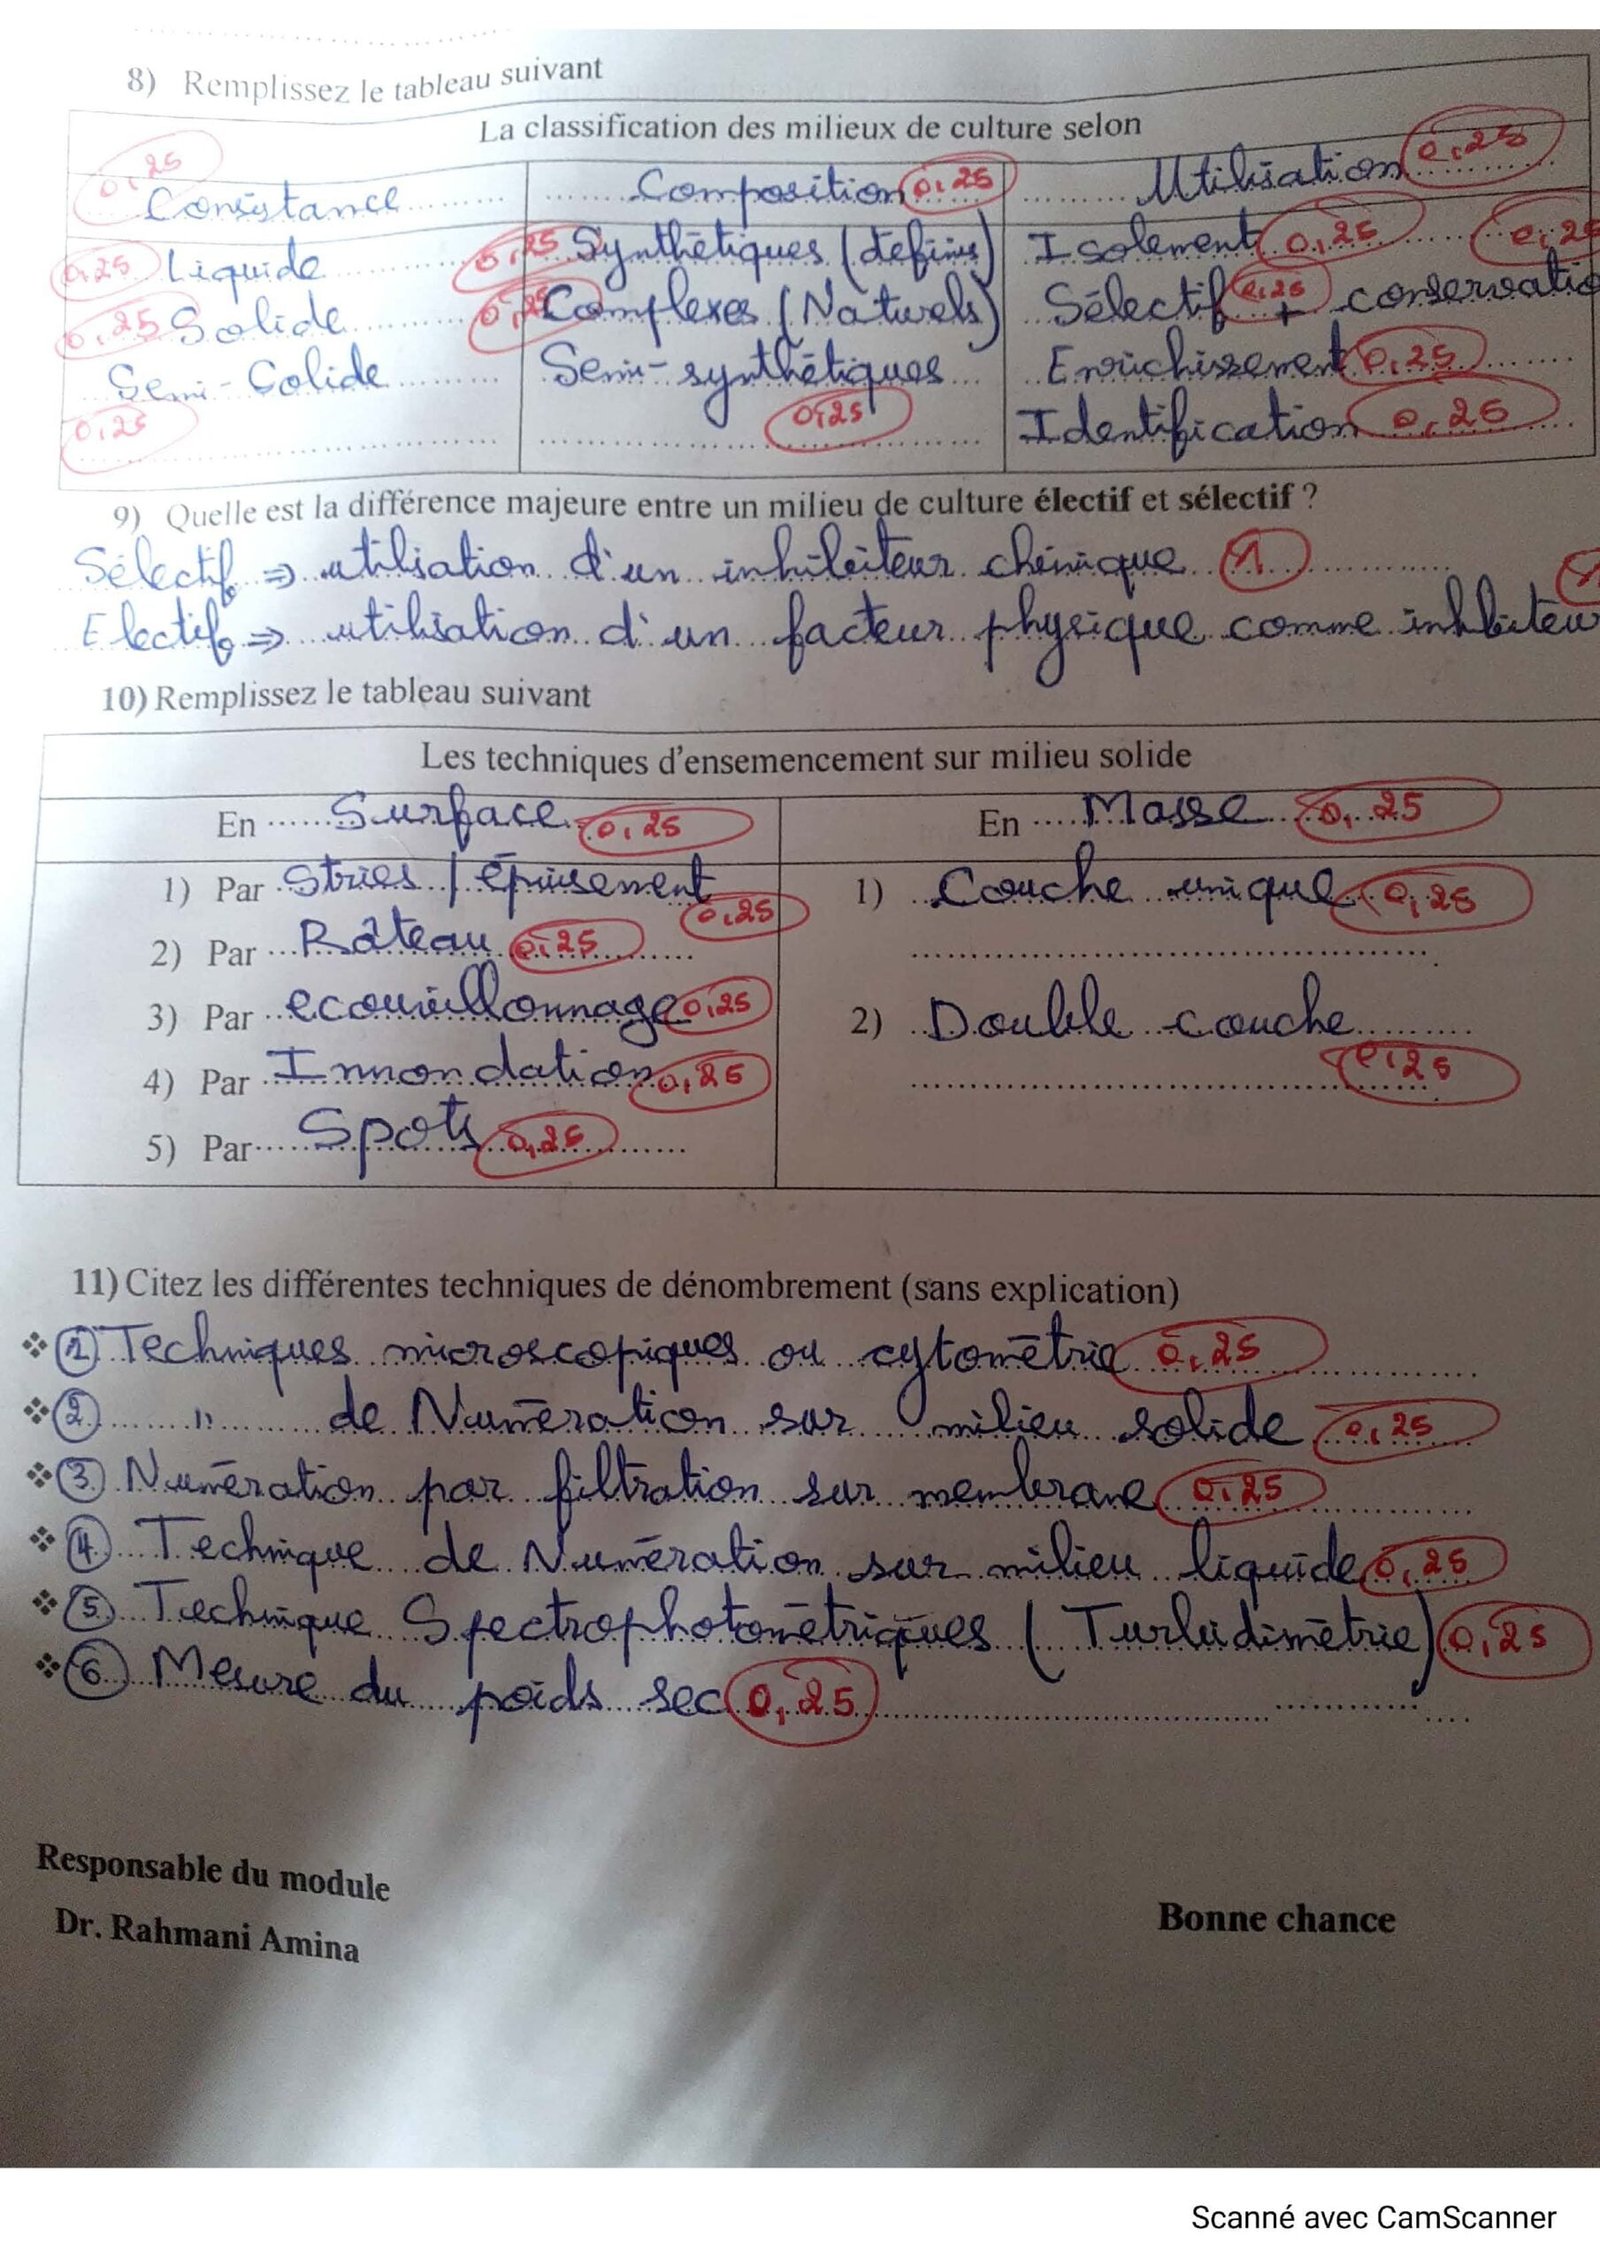 8) Remplissez le tableau suivant
La classification des milieux de culture selon
Consistance 0,25 Composition 0,25 Utilisation 0,25
0,25 Liquide 0,25 Synthétiques (définis) Isolement 0,25 0,25
0,25 Solide 0,25 Complexes (Naturels) Sélectif 0,25 + conservatio
Semi-Solide Semi-synthétiques Enrichissement 0,25
0,25 0,25 Identification 0,25
9) Quelle est la différence majeure entre un milieu de culture électif et sélectif ?
Sélectif => utilisation d'un inhibiteur chimique 1
Electif => utilisation d'un facteur physique comme inhibiteur 1
10) Remplissez le tableau suivant
Les techniques d'ensemencement sur milieu solide
En Surface 0,25 En Masse 0,25
1) Par Stries / épuisement 0,25 1) Couche unique 0,25
2) Par Râteau 0,25
3) Par ecouvillonnage 0,25 2) Double couche 0,25
4) Par Innondation 0,25
5) Par Spots 0,25
11) Citez les différentes techniques de dénombrement (sans explication)
❖ 1 Techniques microscopiques ou cytométrie 0,25
❖ 2 " de Numération sur milieu solide 0,25
❖ 3 Numération par filtration sur membrane 0,25
❖ 4 Technique de Numération sur milieu liquide 0,25
❖ 5 Technique Spectrophotométriques (Turbidimétrie) 0,25
❖ 6 Mesure du poids sec 0,25
Responsable du module
Dr. Rahmani Amina
Bonne chance
Scanné avec CamScanner